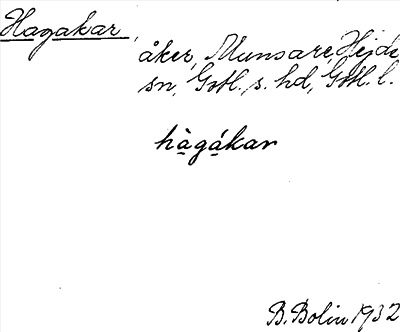 Hagakar,
åker, Munsare, Hejde
sn, Gotl. s. hd, Gotl. l.
hàgákar
B. Bolin 1932